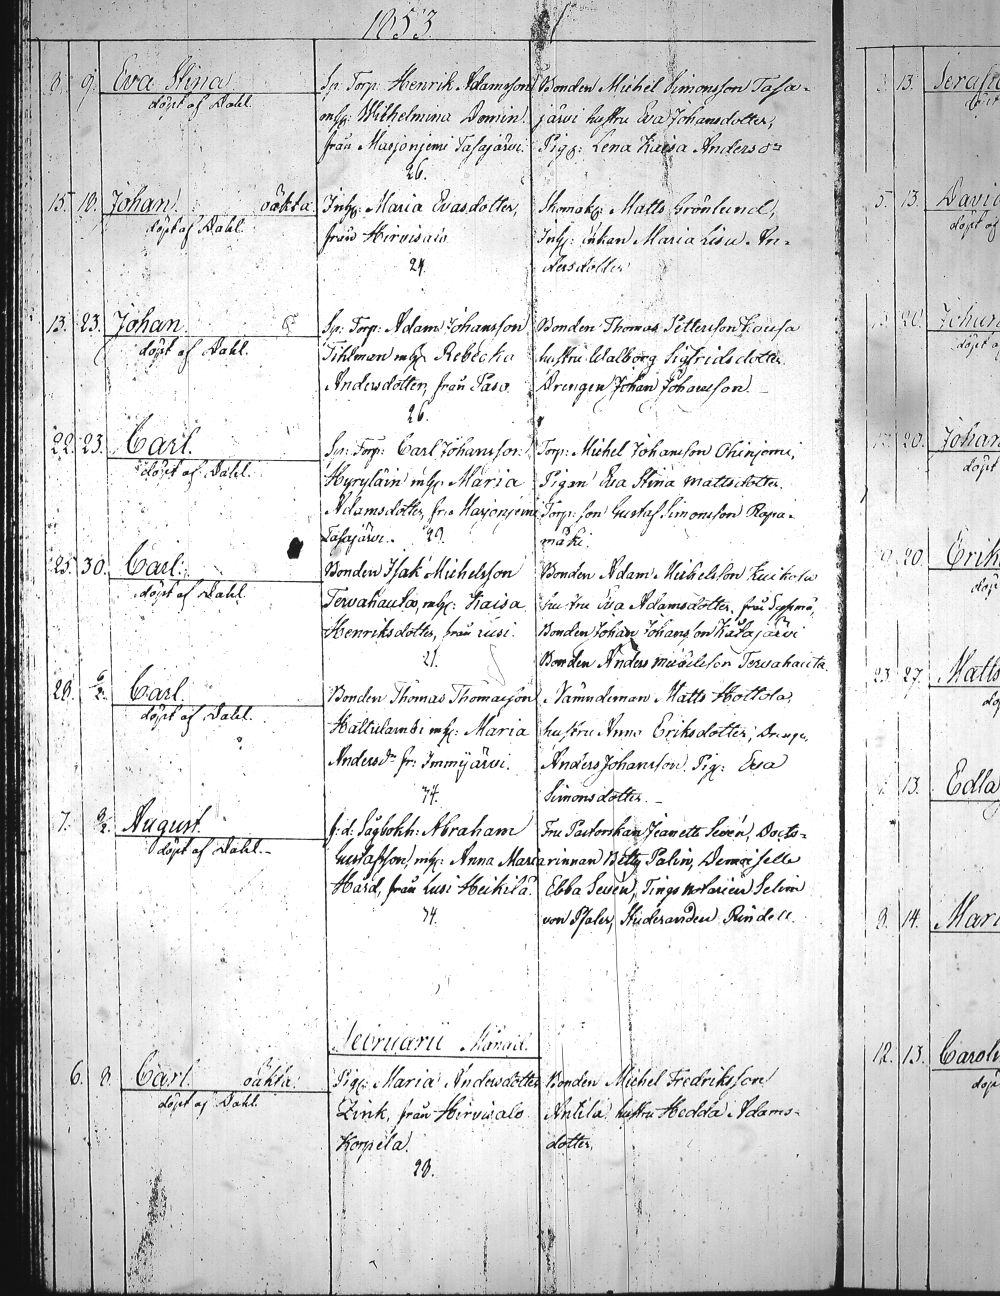 1853
8. 9. Eva Stina
döpt af Dahl.
Sp: Torp. Henrik Adamsson
mhg: Wilhelmina Domin
från Marjoniemi Tasajärvi.
26.
Bonden Michel Simonsson Tasa-
järvi hustru Eva Johansdotter,
Pig: Lena Kaisa Anders dr
15. 18. Johan. oäkta
döpt af Dahl.
Inhg: Maria Evasdotter,
från Hirvisalo
24.
Matts Grönlund,
Inhg: enkan Maria Lisa An-
dersdotter
13. 23. Johan.
döpt af Dahl.
Sp: Torp: Adam Johansson
Tihlman mhg Rebecka
Andersdotter, från Paso.
26.
Bonden Thomas Pettersson Kausa
hustru Walborg Sigfridsdotter
Drengen Johan Johansson.
22. 23. Carl.
döpt af Dahl.
Sp: Torp: Carl Johansson
Hyryläin mhg: Maria
Adamsdotter, fr: Marjoniemi
Tasajärvi. 29.
Torp: Michel Johansson Ohinjemi,
Pigan Eva Stina Mattsdotter.
Torp: son Gustaf Simonsson Ropa-
mäki.
25. 30. Carl.
döpt af Dahl.
Bonden Isak Michelsson
Tervahauta, mhg: Kaisa
Henriksdotter, från Lusi.
21.
Bonden Adam Michelsson Kuikola
hustru Eva Adamsdotter, från
Bonden Johan Johansson Kaitajärvi
Bonden Anders Michelsson Tervahauta.
28. 6/2. Carl.
döpt af Dahl.
Bonden Thomas Thomasson
mhg: Maria
Andersdr fr: Immjärvi.
34.
Nämndeman Matts Hottola,
hustru Anna Eriksdotter, Dreng:
Anders Johansson. Pig: Eva
Simonsdotter. -
7. 9/2. August.
döpt af Dahl.-
f: d: Sågbokh: Abraham
Gustafsson, mhg: Anna Maria
Hård, från Lusi Heikilä.
34.
Fru Pastorskan Jeanette Seven, Docto-
rinnan Betty Palin, Demoiselle
Ebba Seven, Tings Notarien Selim
von Pfaler, Studeranden Rindell.
Februarii Månad.
6. 8. Carl. oäkta.
döpt af Dahl.
Pig: Maria Andersdotter
Zink, från Hirvisalo
Korpela.
28.
Bonden Michel Fredriksson
Antila, hustru Hedda Adams-
dotter.
13. Serafi
5. 13. David
döpt af
20. Johan
döpt a
20. Johan
döpt
20. Erik
döp
23. 27. Matts
dö
13. Edla
8. 14. Mari
12. 13. Carol
döp